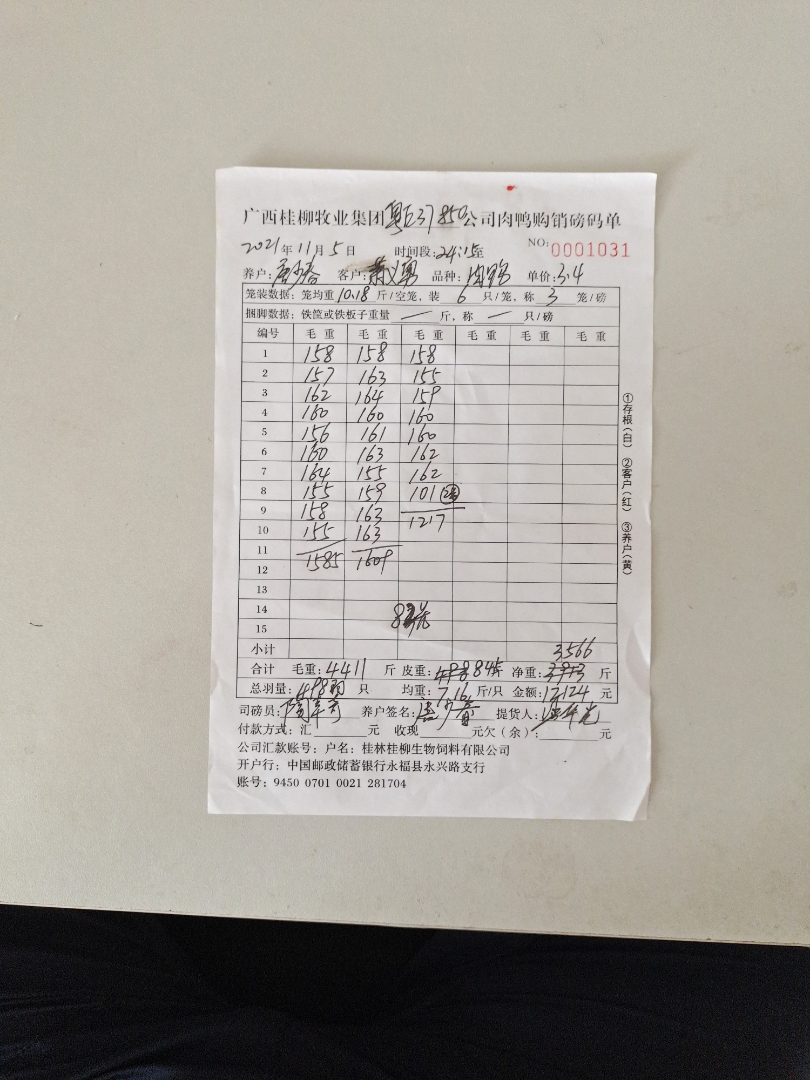 广西桂柳牧业集团粤E37850公司肉鸭购销磅码单
2021年11月5日 时间段:24:15至 NO:0001031
养户: 客户: 品种: 单价:3.4
笼装数据:笼均重10.18斤/空笼,装6只/笼,称3笼/磅
捆脚数据:铁筐或铁板子重量 — 斤,称 — 只/磅
编号 毛重 毛重 毛重 毛重 毛重 毛重
1 158 158 158
2 157 163 155
3 162 164 159
4 160 160 160
5 156 161 160
6 160 163 162
7 164 155 162
8 155 159 101
9 158 163 1217
10 155 163
11 1585 1609
12
13
14
15
小计 3566
合计 毛重:4411斤 皮重:845 净重: 斤
总羽量:498只 均重:7.16斤/只 金额:12124元
司磅员: 养户签名: 提货人:
付款方式:汇 元 收现 元欠(余): 元
公司汇款账号:户名:桂林桂柳生物饲料有限公司
开户行:中国邮政储蓄银行永福县永兴路支行
账号:9450 0701 0021 281704
①存根(白) ②客户(红) ③养户(黄)